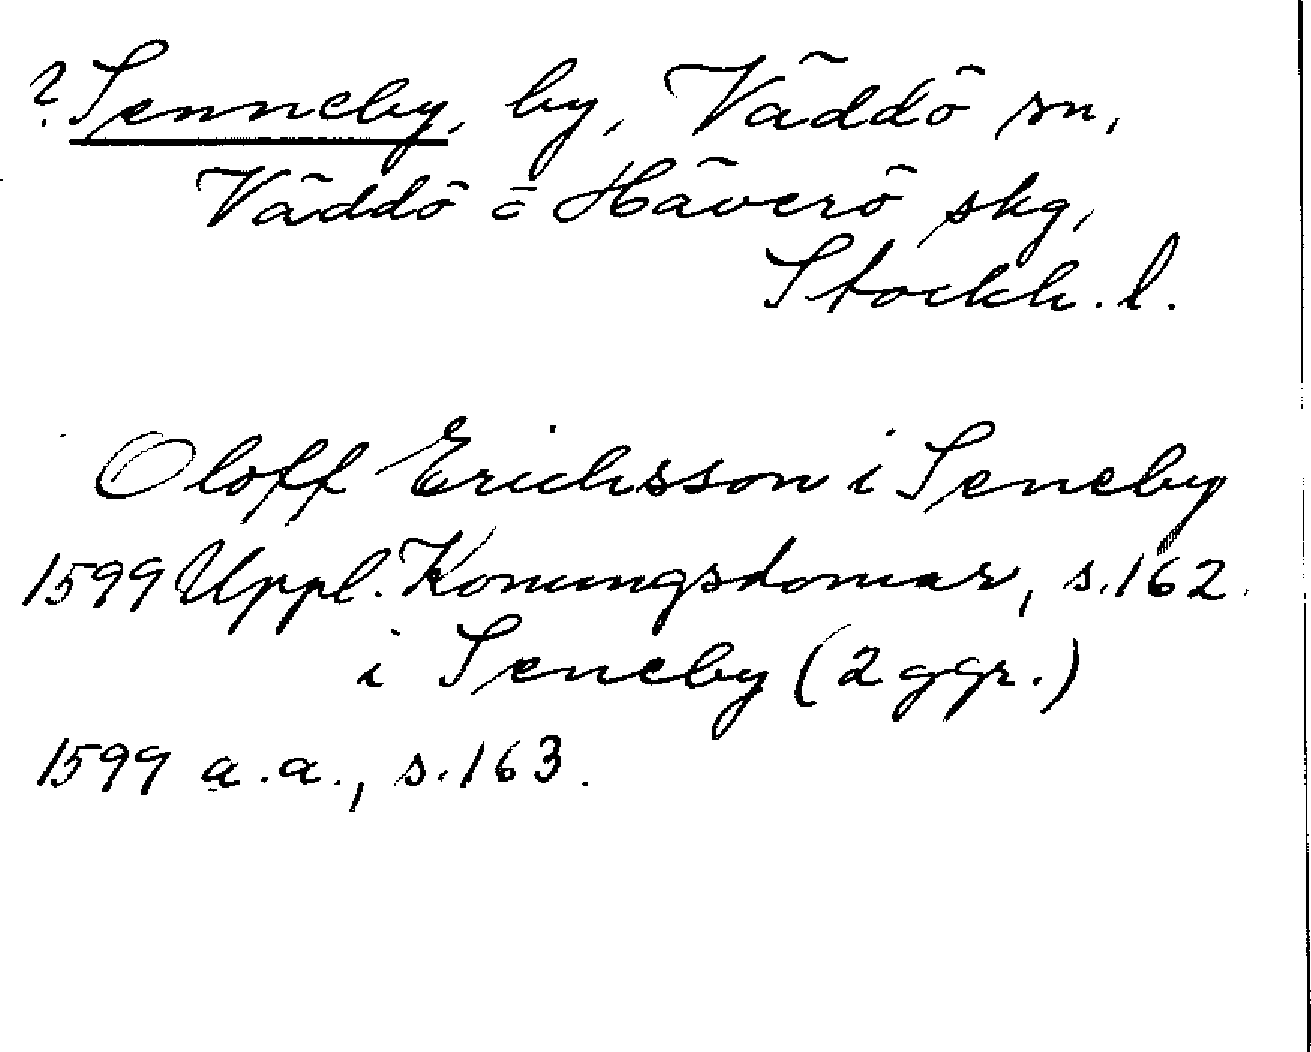 ? Senneby, by, Väddö sn,
Väddö o Häverö skg,
Stockh. l.
Oloff Erichsson i Seneby
1599 Uppl. Konungsdomar, s. 162.
i Seneby (2 ggr.)
1599 a.a., s. 163.